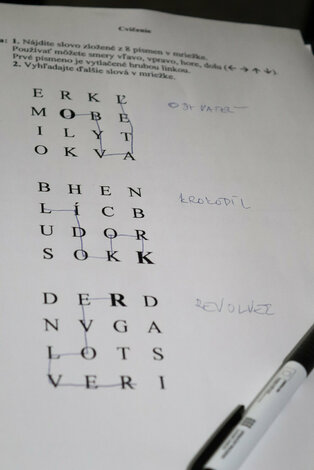 Cvičenie
a: 1. Nájdite slovo zložené z 8 písmen v mriežke.
Používať môžete smery vľavo, vpravo, hore, dolu (← → ↑ ↓).
Prvé písmeno je vytlačené hrubou linkou.
2. Vyhľadajte ďalšie slová v mriežke.
E R K Ľ
M O B E
OBYVATEĽ
I L Y T
O K V A
B H E N
L Í C B
KROKODÍL
U D O R
S O K K
D E R D
REVOLVER
N V G A
L O T S
V E R I